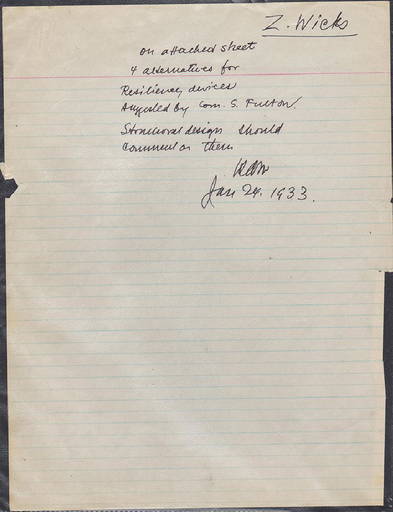 Z. Wicks
on attached sheet
4 alternatives for
Resiliency devices
suggested by Com. G. Fulton.
Structural design should
comment on them
Jan 24. 1933.